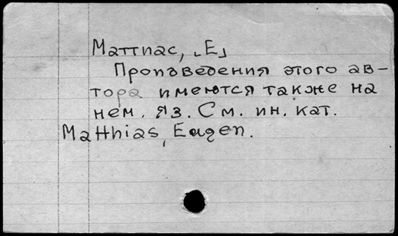 Маттиас, ˻Е˼
Произведения этого ав-
тора имеются также на
нем. яз. См. ин. кат.
Matthias, Eugen.